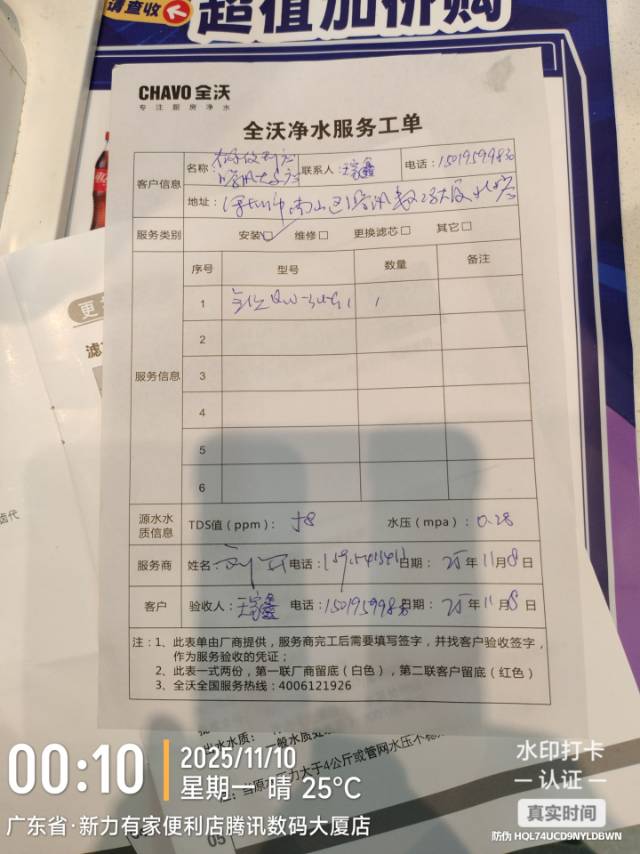 请查收
超值加价购
CHAVO全沃
专注厨房净水
全沃净水服务工单
客户信息
名称：
联系人 王家鑫
电话：
地址：深圳市南山区腾讯数码大厦
服务类别
安装□ 维修□ 更换滤芯□ 其它□
服务信息
序号 型号 数量 备注
1 1
2
3
4
5
6
源水水质信息
TDS值（ppm）：58 水压（mpa）：0.28
服务商 姓名： 电话： 日期：25年11月8日
客户 验收人：王家鑫 电话： 日期：25年11月8日
注：1、此表单由厂商提供，服务商完工后需要填写签字，并找客户验收签字，
作为服务验收的凭证；
2、此表一式两份，第一联厂商留底（白色），第二联客户留底（红色）
3、全沃全国服务热线：4006121926
出水水质：
00:10
2025/11/10
星期一 晴 25℃
广东省·新力有家便利店腾讯数码大厦店
水印打卡
认证
真实时间
防伪 HQL74UCD9NYLDBWN